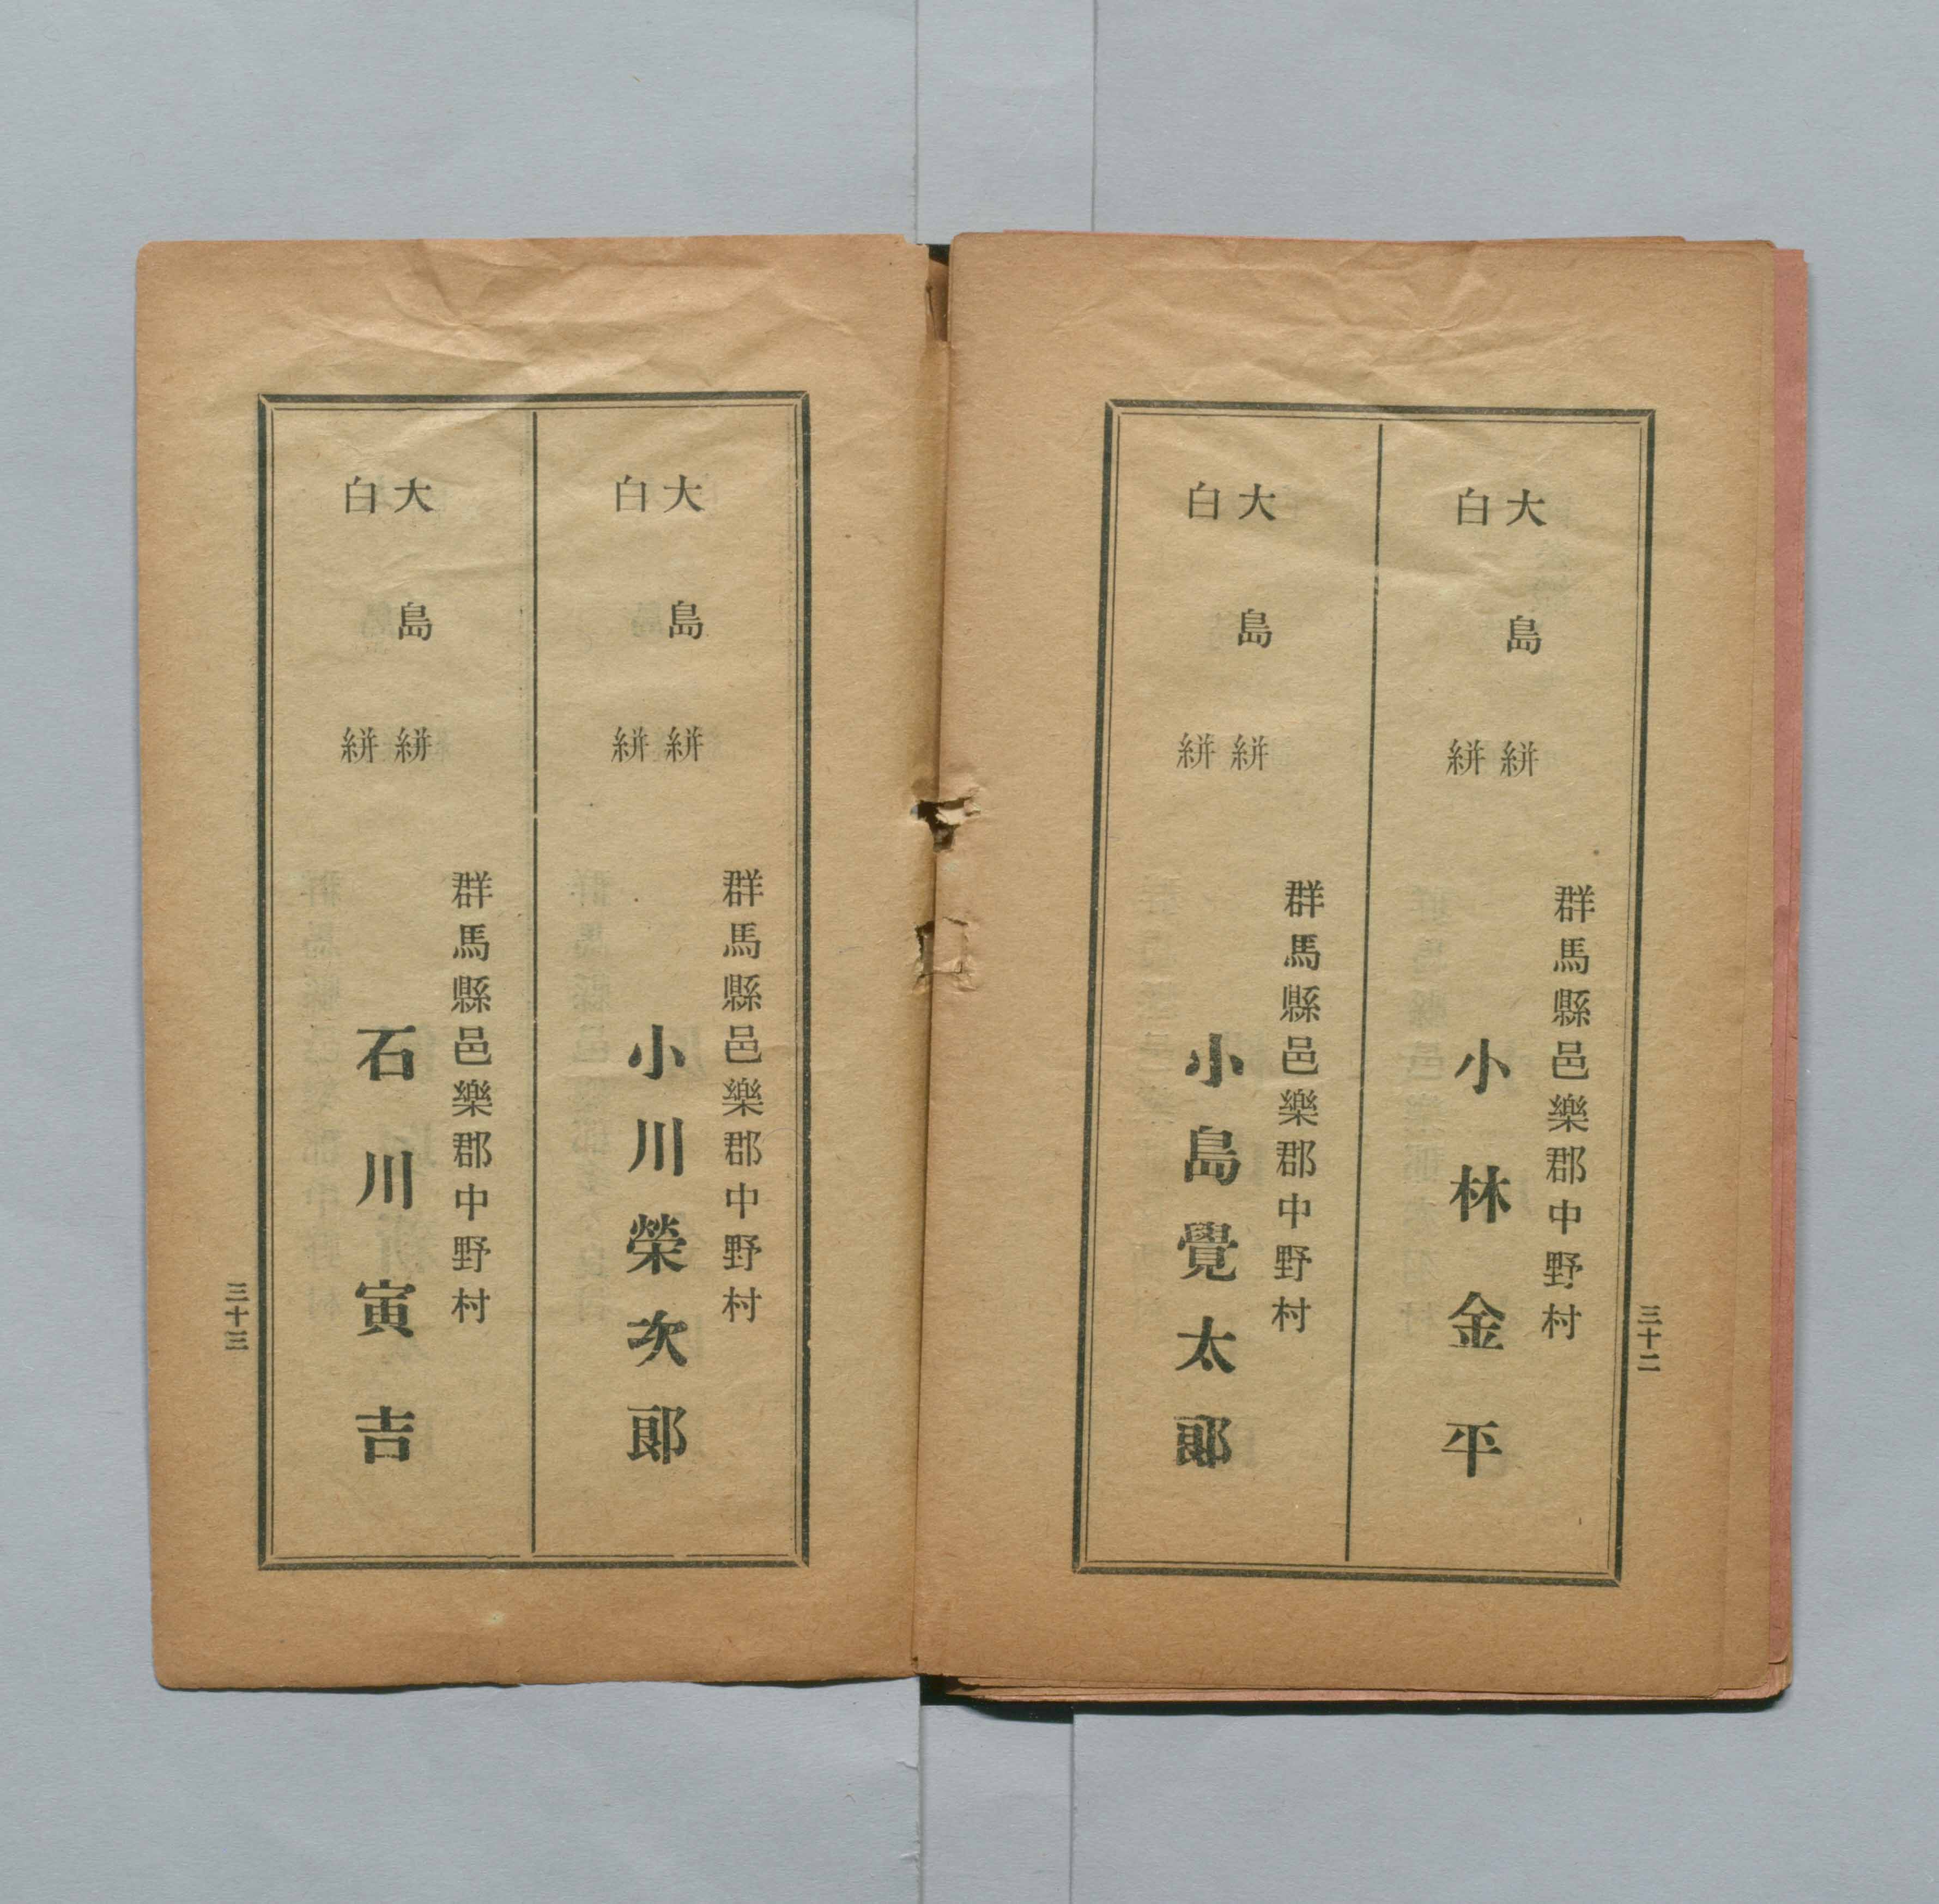 三十二
大島絣
白絣
群馬縣邑樂郡中野村
小林金平
大島絣
白絣
群馬縣邑樂郡中野村
小島覺太郞
大島絣
白絣
群馬縣邑樂郡中野村
小川榮次郞
大島絣
白絣
群馬縣邑樂郡中野村
石川寅吉
三十三